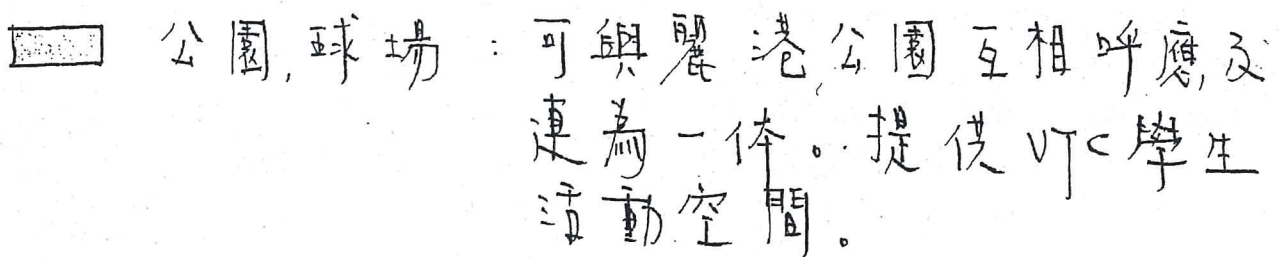 公園,球場:可與麗港公園互相呼應,及
連為一体。提供VTC學生
活動空間。